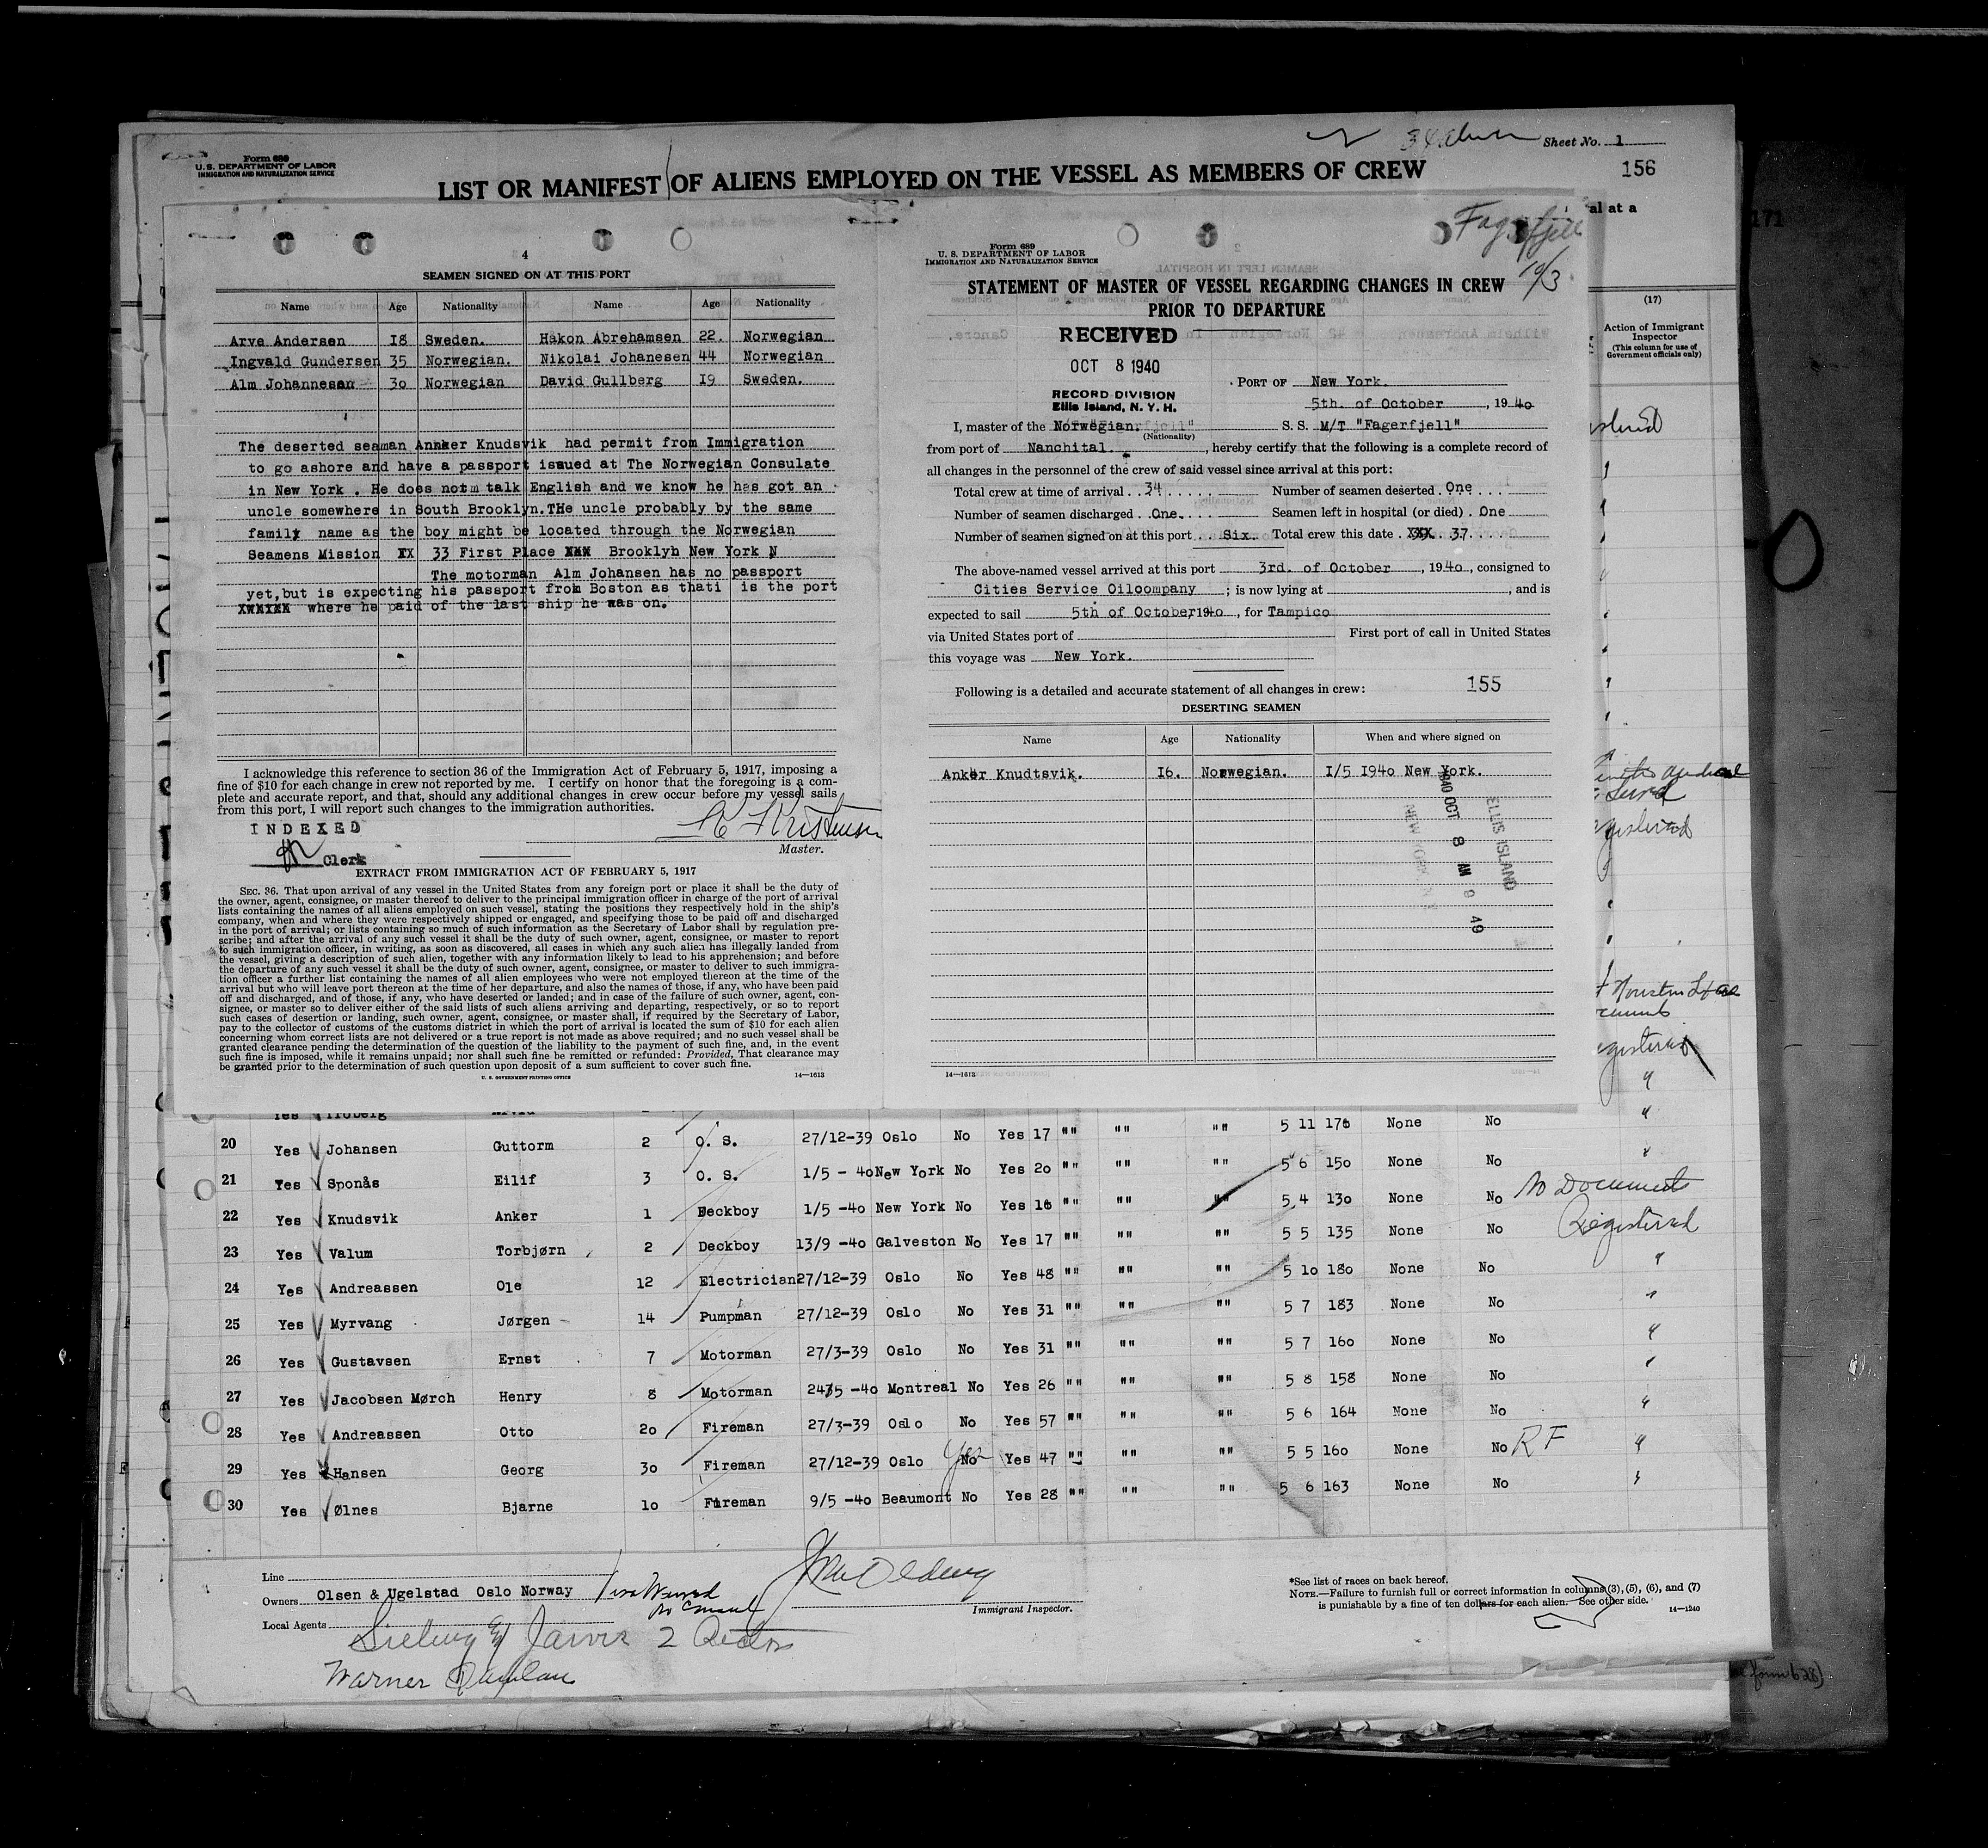 Form 689
U.S. DEPARTMENT OF LABOR
IMMIGRATION AND NATURALIZATION SERVICE
Sheet No. 1
156
LIST OR MANIFEST OF ALIENS EMPLOYED ON THE VESSEL AS MEMBERS OF CREW
al at a
171
4
SEAMEN SIGNED ON AT THIS PORT
Name Age Nationality Name Age Nationality
Arve Andersen 18 Sweden. Håkon Abrehamsen 22. Norwegian
Ingvald Gundersen 35 Norwegian. Nikolai Johanesen 44 Norwegian
Alm Johannesen 30 Norwegian David Gullberg 19 Sweden.
The deserted seaman Annker Knudsvik had permit from Immigration
to go ashore and have a passport issued at The Norwegian Consulate
in New York . He does notm talk English and we know he has got an
uncle somewhere in South Brooklyn.THe uncle probably by the same
family name as the boy might be located through the Norwegian
Seamens Mission XX 33 First Place XXX Brooklyn New York N
The motorman Alm Johansen has no passport
yet,but is expecting his passport from Boston as thati is the port
where he paid of the last ship he was on.
I acknowledge this reference to section 36 of the Immigration Act of February 5, 1917, imposing a
fine of $10 for each change in crew not reported by me. I certify on honor that the foregoing is a com-
plete and accurate report, and that, should any additional changes in crew occur before my vessel sails
from this port, I will report such changes to the immigration authorities.
INDEXED
Clerk
Master.
EXTRACT FROM IMMIGRATION ACT OF FEBRUARY 5, 1917
SEC. 36. That upon arrival of any vessel in the United States from any foreign port or place it shall be the duty of
the owner, agent, consignee, or master thereof to deliver to the principal immigration officer in charge of the port of arrival
lists containing the names of all aliens employed on such vessel, stating the positions they respectively hold in the ship's
company, when and where they were respectively shipped or engaged, and specifying those to be paid off and discharged
in the port of arrival; or lists containing so much of such information as the Secretary of Labor shall by regulation pre-
scribe; and after the arrival of any such vessel it shall be the duty of such owner, agent, consignee, or master to report
to such immigration officer, in writing, as soon as discovered, all cases in which any such alien has illegally landed from
the vessel, giving a description of such alien, together with any information likely to lead to his apprehension; and before
the departure of any such vessel it shall be the duty of such owner, agent, consignee, or master to deliver to such immigra-
tion officer a further list containing the names of all alien employees who were not employed thereon at the time of the
arrival but who will leave port thereon at the time of her departure, and also the names of those, if any, who have been paid
off and discharged, and of those, if any, who have deserted or landed; and in case of the failure of such owner, agent, con-
signee, or master so to deliver either of the said lists of such aliens arriving and departing, respectively, or so to report
such cases of desertion or landing, such owner, agent, consignee, or master shall, if required by the Secretary of Labor,
pay to the collector of customs of the customs district in which the port of arrival is located the sum of $10 for each alien
concerning whom correct lists are not delivered or a true report is not made as above required; and no such vessel shall be
granted clearance pending the determination of the question of the liability to the payment of such fine, and, in the event
such fine is imposed, while it remains unpaid; nor shall such fine be remitted or refunded: Provided, That clearance may
be granted prior to the determination of such question upon deposit of a sum sufficient to cover such fine.
U. S. GOVERNMENT PRINTING OFFICE 14—1613
Fagerfjell
10/3
Form 689
U. S. DEPARTMENT OF LABOR
IMMIGRATION AND NATURALIZATION SERVICE
STATEMENT OF MASTER OF VESSEL REGARDING CHANGES IN CREW
PRIOR TO DEPARTURE
RECEIVED
OCT 8 1940
RECORD DIVISION
Ellis Island, N. Y. H.
PORT OF New York.
5th. of October, 1940
I, master of the Norwegian. S. S. M/T "Fagerfjell"
(Nationality)
from port of Nanchital., hereby certify that the following is a complete record of
all changes in the personnel of the crew of said vessel since arrival at this port:
Total crew at time of arrival 34 Number of seamen deserted One
Number of seamen discharged One. Seamen left in hospital (or died) One
Number of seamen signed on at this port Six. Total crew this date XXX 37.
The above-named vessel arrived at this port 3rd. of October, 1940, consigned to
Cities Service Oilcompany ; is now lying at , and is
expected to sail 5th of October, 1940, for Tampico
via United States port of First port of call in United States
this voyage was New York.
Following is a detailed and accurate statement of all changes in crew: 155
DESERTING SEAMEN
Name Age Nationality When and where signed on
Anker Knudtsvik. 16. Norwegian. 1/5 1940 New York.
ELLIS ISLAND
1940 OCT 8 AM 9 49
NEW YORK
14—1613
(17)
Action of Immigrant
Inspector
(This column for use of
Government officials only)
5 11 176 None No
20 Yes Johansen Guttorm 2 O. S. 27/12-39 Oslo No Yes 17 "" "" "" 5 6 150 None No
21 Yes Sponås Eilif 3 O. S. 1/5 - 40 New York No Yes 20 "" "" "" 5 4 130 None No No Documents
22 Yes Knudsvik Anker 1 Deckboy 1/5 -40 New York No Yes 16 "" "" "" 5 5 135 None No Registered
23 Yes Valum Torbjørn 2 Deckboy 13/9 -40 Galveston No Yes 17 "" "" "" 5 10 180 None No "
24 Yes Andreassen Ole 12 Electrician 27/12-39 Oslo No Yes 48 "" "" "" 5 7 183 None No "
25 Yes Myrvang Jørgen 14 Pumpman 27/12-39 Oslo No Yes 31 "" "" "" 5 7 160 None No "
26 Yes Gustavsen Ernst 7 Motorman 27/3-39 Oslo No Yes 31 "" "" "" 5 8 158 None No "
27 Yes Jacobsen Mørch Henry 8 Motorman 24/5 -40 Montreal No Yes 26 "" "" "" 5 6 164 None No "
28 Yes Andreassen Otto 20 Fireman 27/3-39 Oslo No Yes 57 "" "" "" 5 5 160 None No RF "
29 Yes Hansen Georg 30 Fireman 27/12-39 Oslo No Yes Yes 47 "" "" "" 5 6 163 None No "
30 Yes Ølnes Bjarne 10 Fireman 9/5 -40 Beaumont No Yes 28 "" "" ""
Line
Owners Olsen & Ugelstad Oslo Norway
Local Agents
Immigrant Inspector.
*See list of races on back hereof.
NOTE.—Failure to furnish full or correct information in columns (3), (5), (6), and (7)
is punishable by a fine of ten dollars for each alien. See other side. 14—1240
Warner